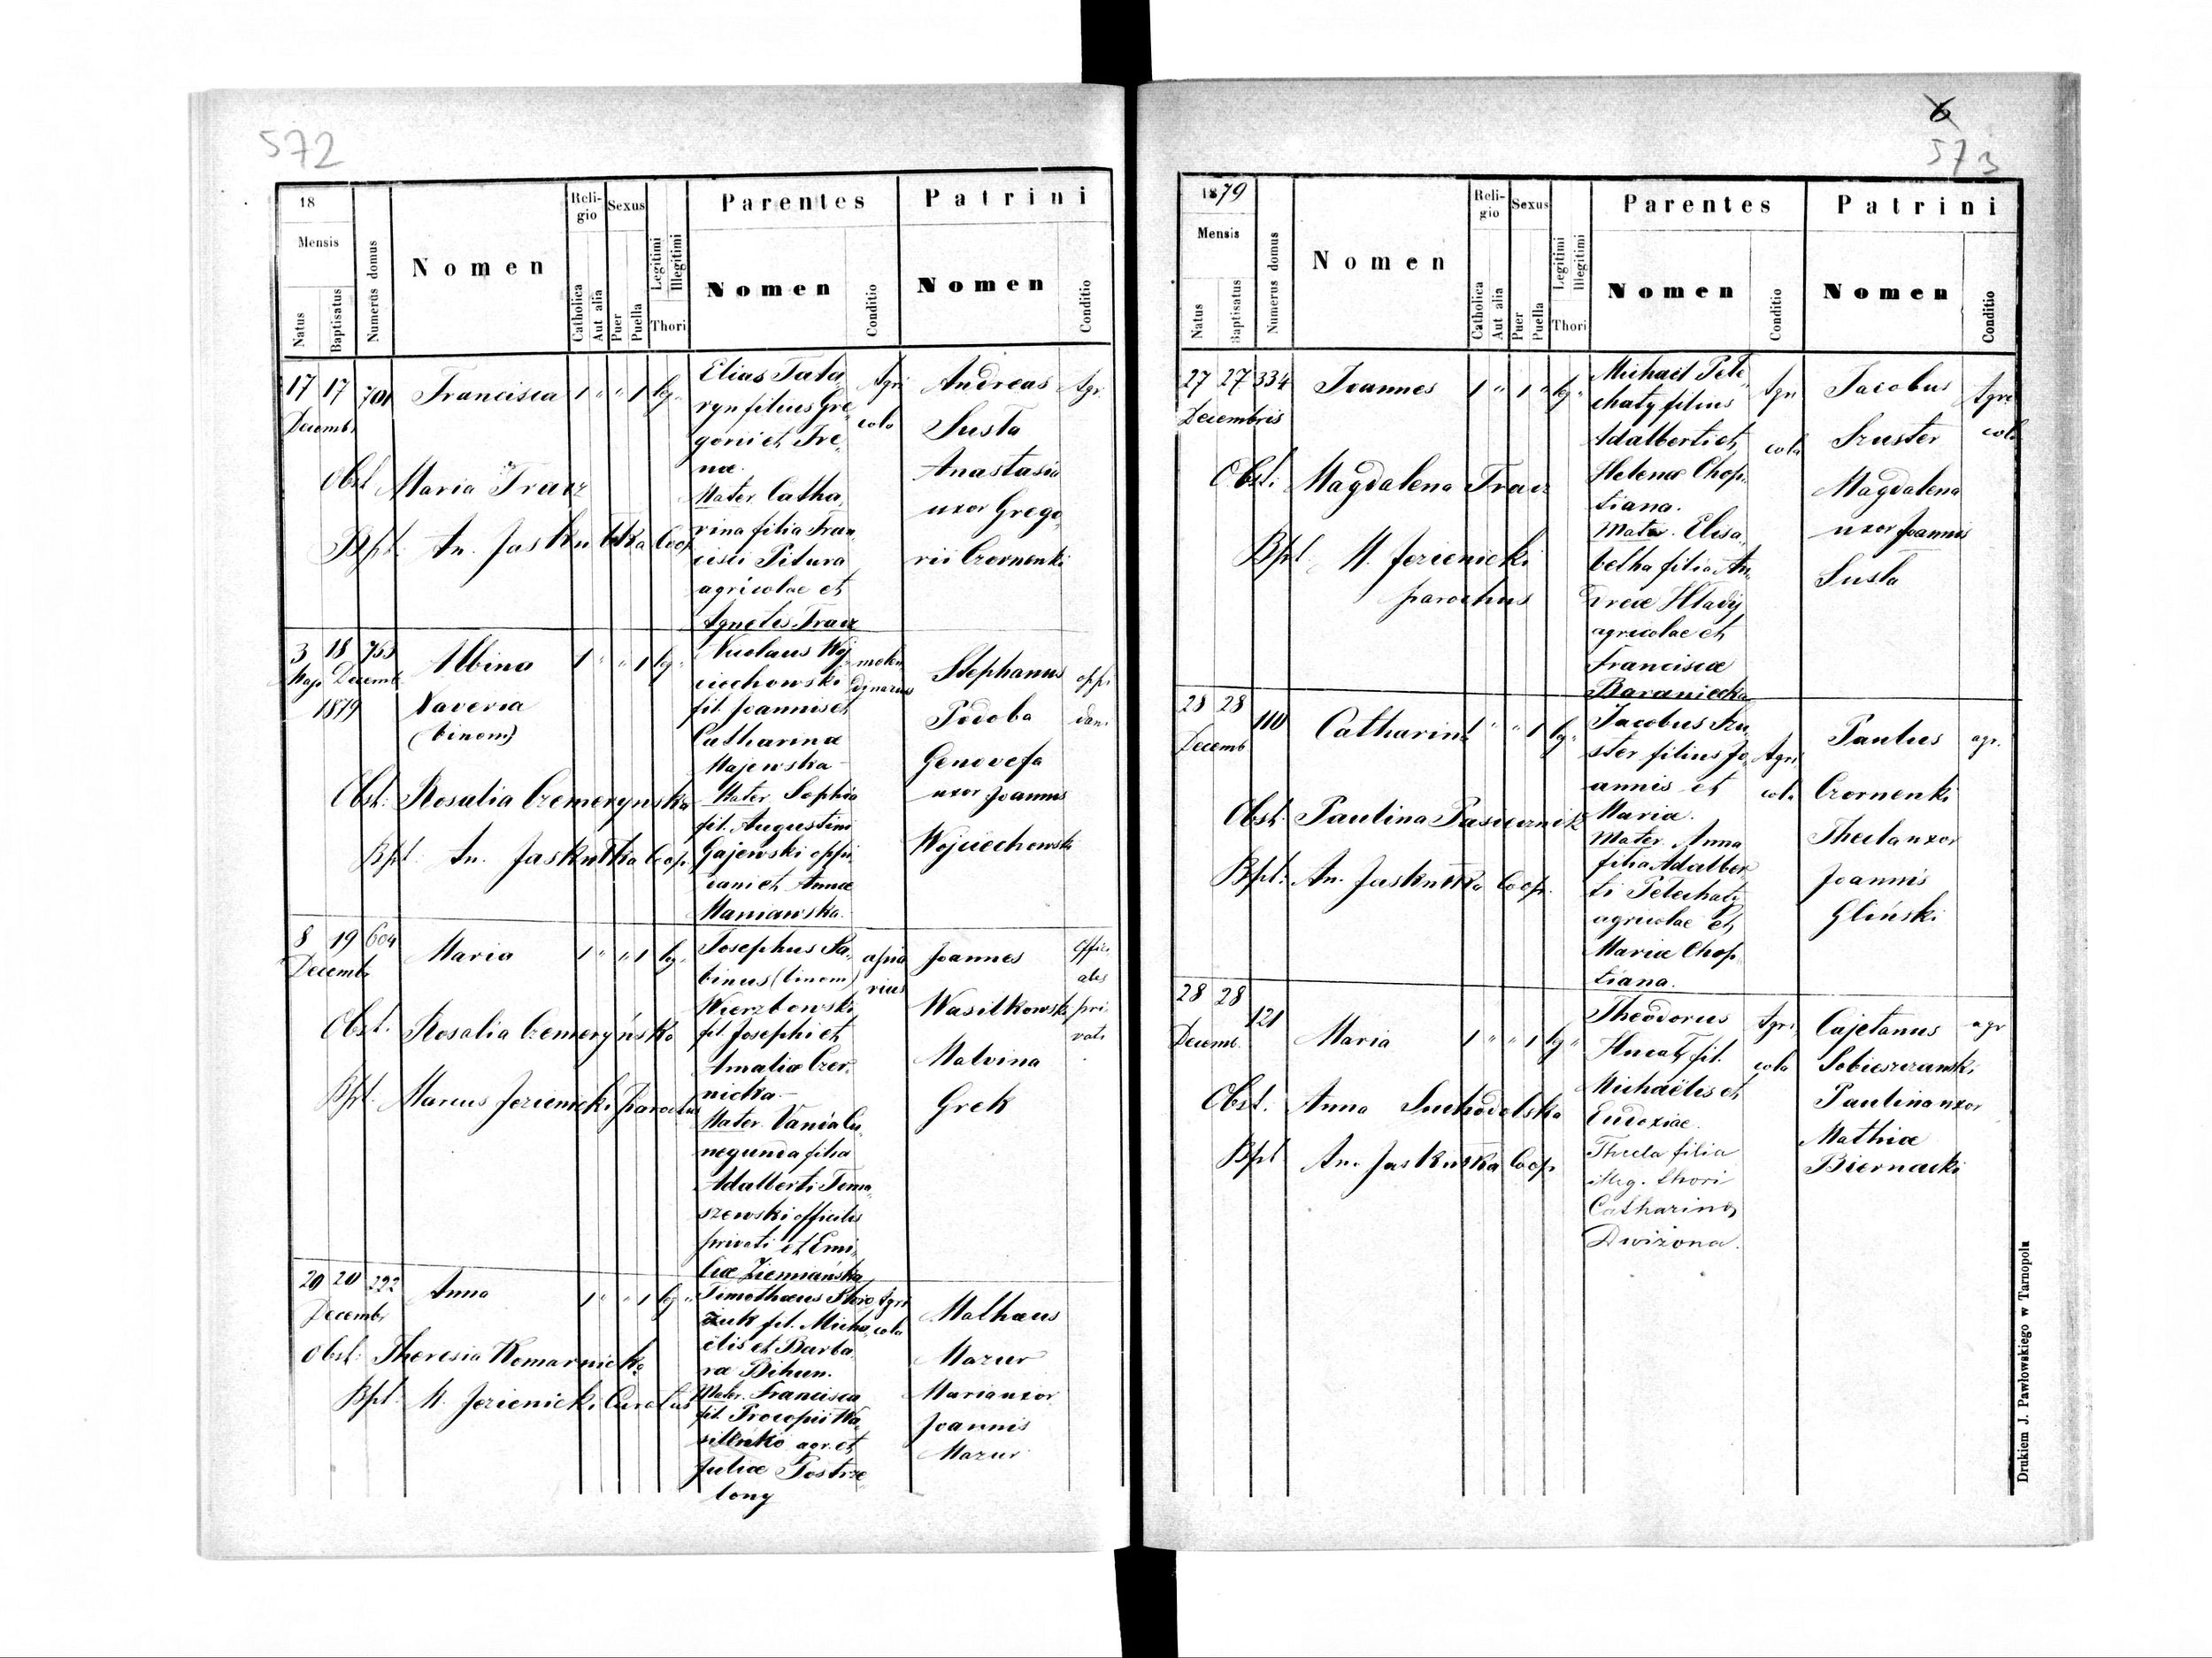 572
18
Mensis
Natus
Baptisatus
Numerus domus
Nomen
Religio
Catholica
Aut alia
Sexus
Puer
Puella
Legitimi
Illegitimi
Thori
Parentes
Nomen
Conditio
Patrini
Nomen
Conditio
17 17 701 Francisca 1 " " 1 leg.
Decembr
Obst Maria Tracz
Bpt. An. Jaskulska Coop
Elias Tata
ryn filius Gre
gorii et Ire
nae.
Mater Catha
rina filia Fran
cisci Pitura
agricolae et
Agnetis Tracz
Agri
cola
Andreas
Susta
Anastasia
uxor Grego
rii Czornenki
Agr.
3 18 753 Albina 1 " " 1 leg.
Majo Decemb
1879
Xaveria
(binom)
Obst: Rosalia Czemerynska
Bpt. An. Jaskulska Coop.
Nicolaus Woj
ciechowski
fil. Joannis et
Catharinae
Majewska
Mater Sophia
fil. Augustini
Gajewski oppi
dani et Annae
Maniawska.
molen
dinarius
Stephanus
Podoba
Genovefa
uxor Joannis
Wojciechowski
oppi
dani
8 19 604 Maria 1 " " 1 leg.
Decemb
Obst. Rosalia Czemeryńska
Bpt. Marcus Jezienicki Parochus
Josephus Sa
binus (binom)
Wierzbowski
fil. Josephi et
Amaliae Czer
nicka
Mater Vania Cu
negunda filia
Adalberti Toma
szewski officialis
privati et Emi
liae Ziemiańska
apia
rius
Joannes
Wasilkowski
Malvina
Grek
Offici
ales
pri
vati
20 20 222 Anna 1 " " 1 leg.
Decembr
Obst: Theresia Komarnicka
Bpt. M. Jezienicki Curatus
Timothaeus
fil. Micha
ëlis et Barba
rae Bihun.
Mater. Francisca
fil. Procopii Wa
silenko agr. et
Juliae Postrze
lony
Agri
cola
Mathaeus
Mazur
Maria uxor
Joannis
Mazur
6
573
1879
Mensis
Natus
Baptisatus
Numerus domus
Nomen
Religio
Catholica
Aut alia
Sexus
Puer
Puella
Legitimi
Illegitimi
Thori
Parentes
Nomen
Conditio
Patrini
Nomen
Conditio
27 27 334 Joannes 1 " 1 " leg.
Decembris
Obst: Magdalena Tracz
Bpt M. Jezienicki
parochus
Michaël Pete
chaty filius
Adalberti et
Helenae Chop
tiana.
Mater. Elisa
betha filia An
dreae Hladij
agricolae et
Franciscae
Baraniecka
Agri
cola
Jacobus
Szuster
Magdalena
uxor Joannis
Susta
Agri
cola
28 28 110 Catharina 1 " " 1 leg.
Decemb
Obst. Paulina Pasiecznik
Bpt. An. Jaskulska Coop.
Jacobus Szu
ster filius Jo
annis et
Mariae.
Mater Anna
filia Adalber
ti Petechaty
agricolae et
Mariae Chop
tiana.
Agri
cola
Paulus
Czornenki
Thecla uxor
Joannis
Gliński
agr.
28 28 121 Maria 1 " " 1 leg "
Decemb.
Obst. Anna Suchodolska
Bpt An. Jaskulska Coop
Theodorus
Hucaty fil.
Michaëlis et
Eudoxiae.
Thecla filia
illeg. thori
Catharina
Dwizona.
Agri
cola
Cajetanus
Sobieszczanski
Paulina uxor
Mathiae
Biernacki
agr
Drukiem J. Pawłowskiego w Tarnopolu